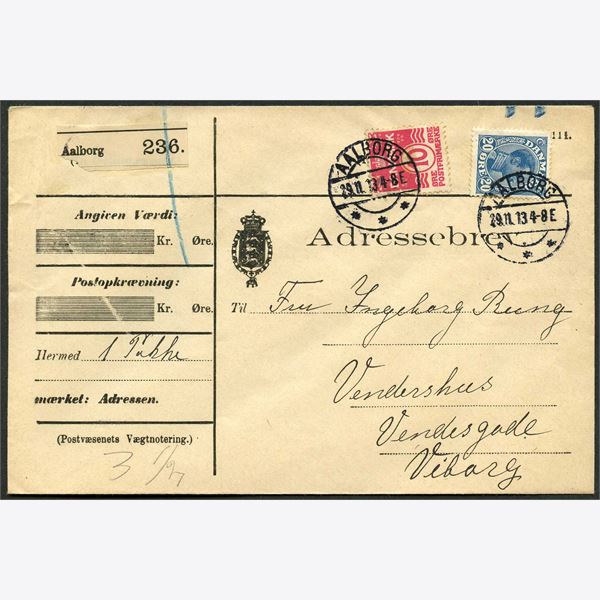 Aalborg 236.
111.
10 ØRE
ØRE POSTFRIMÆRKE
DANMARK
20 ØRE 20
AALBORG
29.11.13 4-8 E
AALBORG
29.11.13 4-8 E
Angiven Værdi:
Kr. Øre.
Postopkrævning:
Kr. Øre.
Hermed 1 Pakke
mærket: Adressen.
(Postvæsenets Vægtnotering.)
Adressebrev
Til Fru Ingeborg Rung
Vendershus
Vendesgade
Viborg